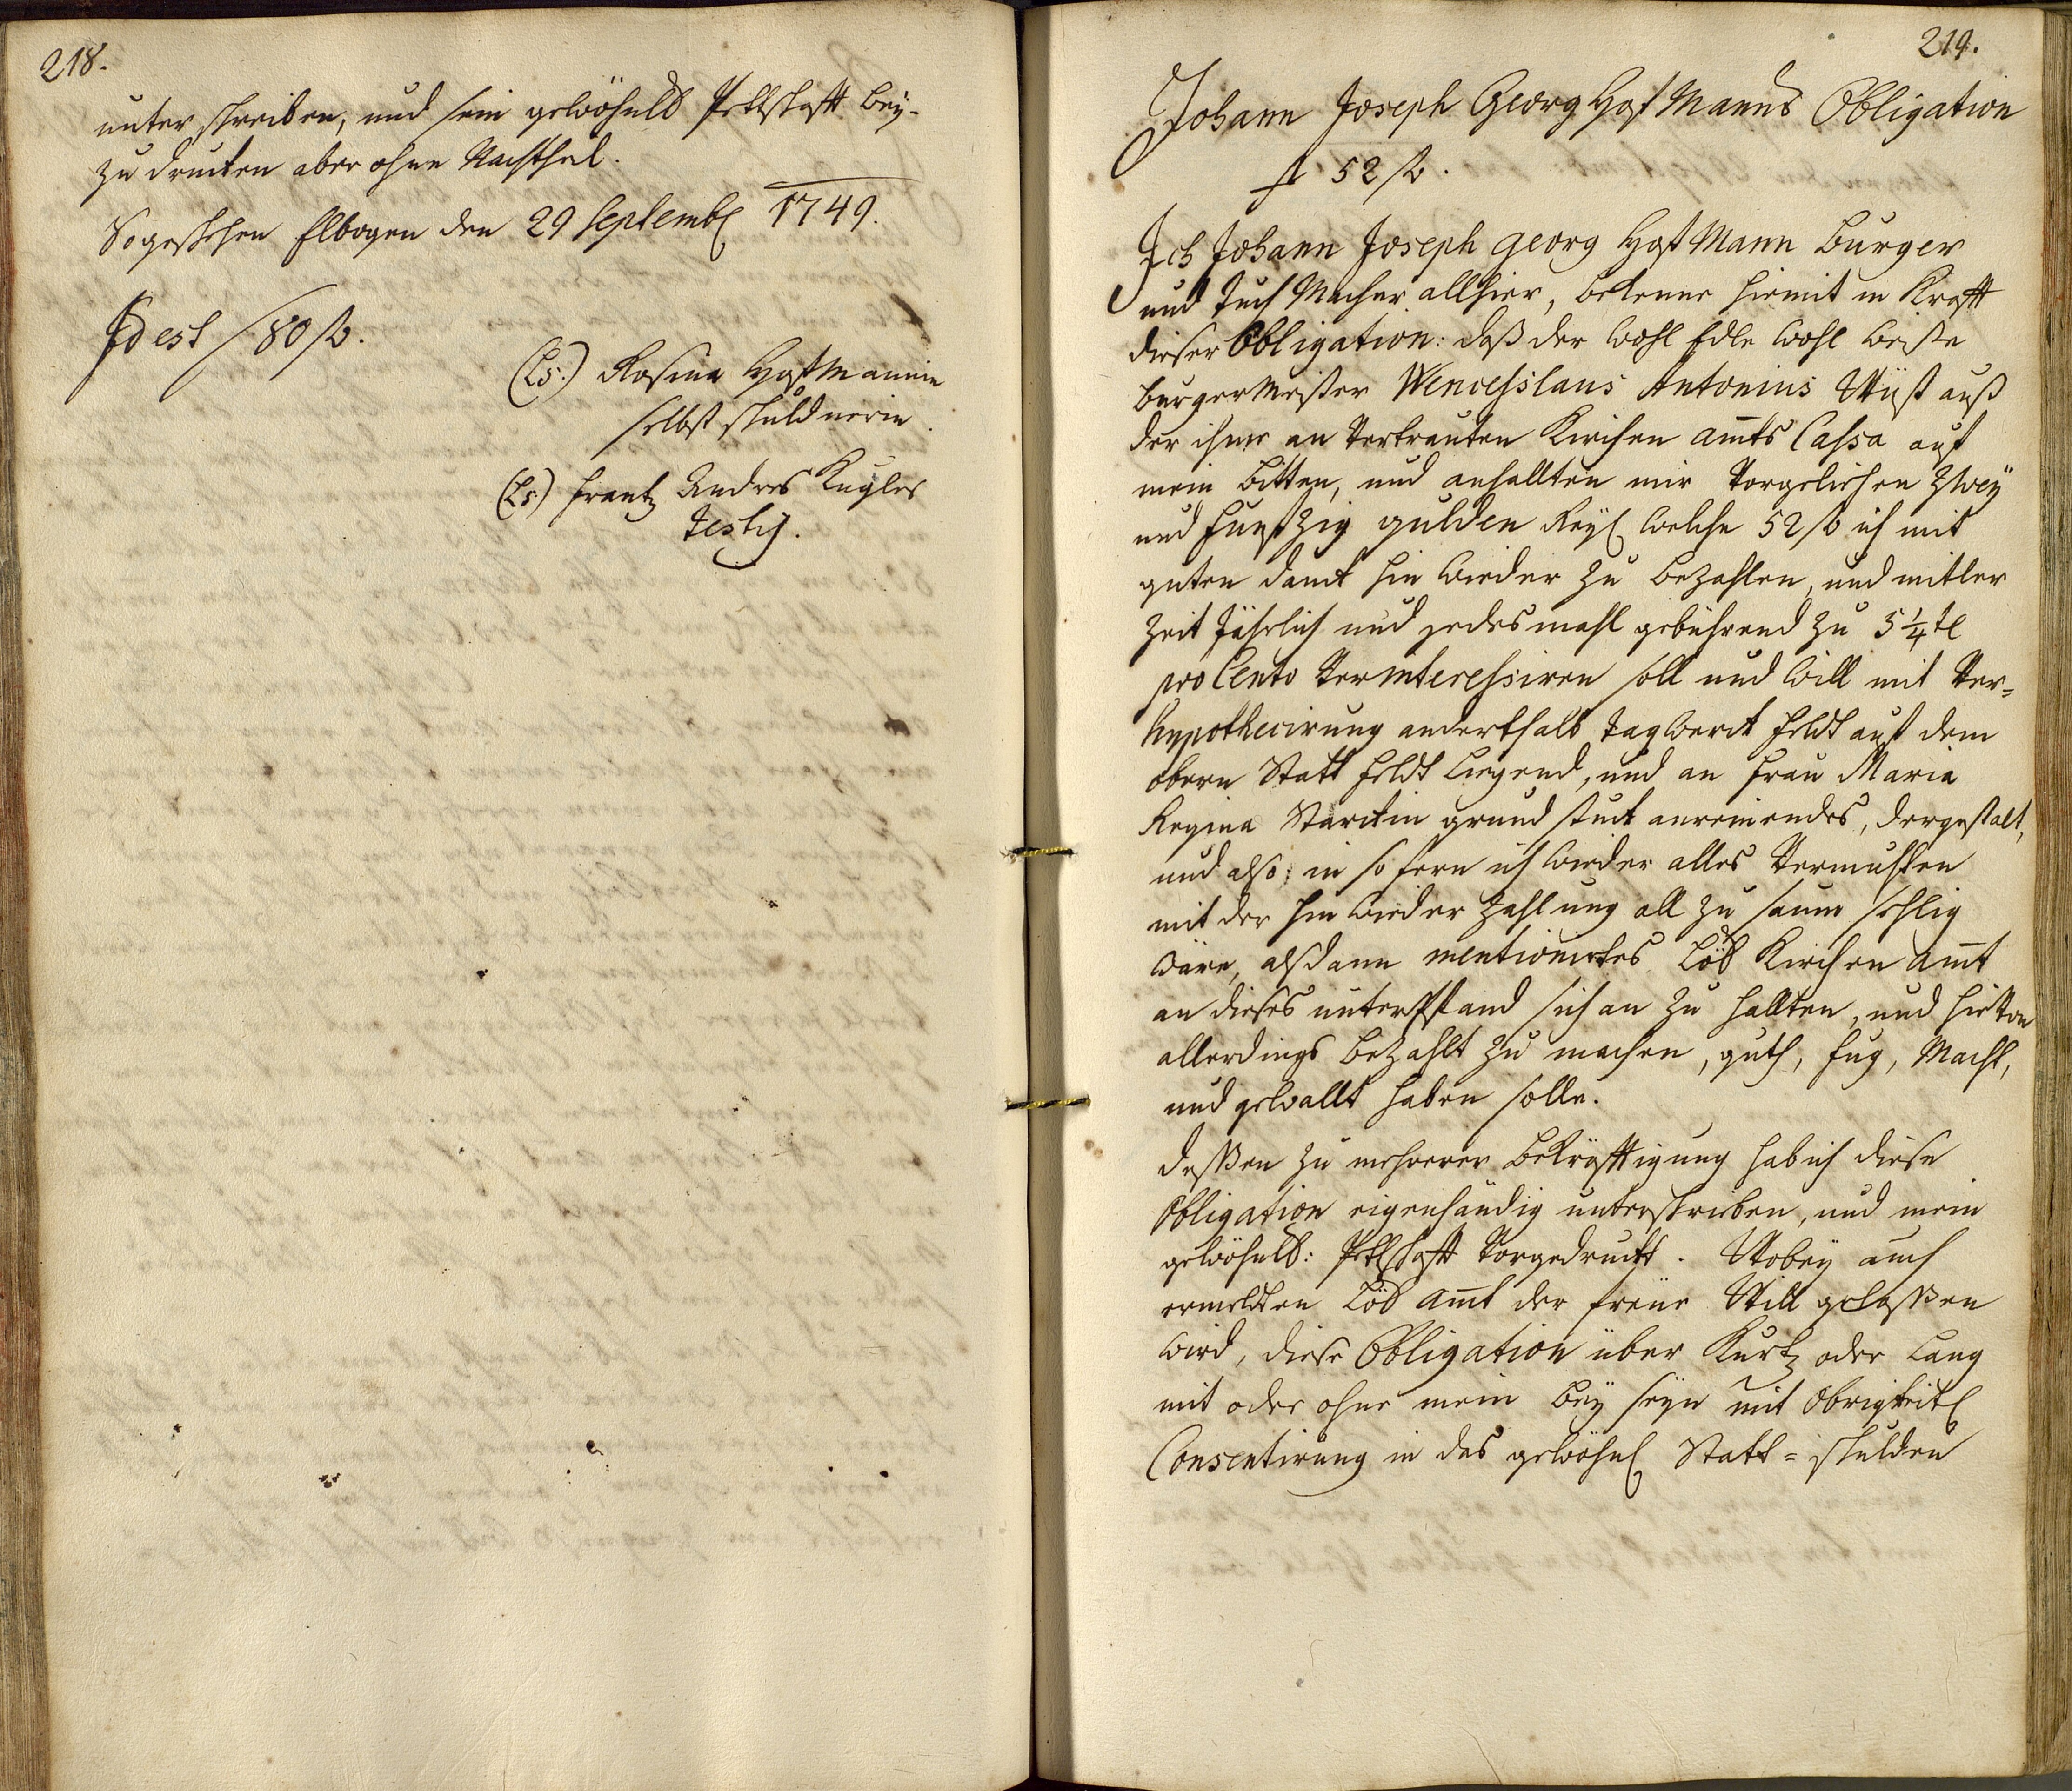 218.
unter schreiben, und sein gewöhnlb Pettschafft bey-
zu drucken aber ohne Nachtheil.
So geschehen Elbogen den 29 Septembl 1749.
Id est / 80 fl.
(Ls.) Rosina Hoffmannin
selbst schuldnerin.
(Ls.) Frantz Andres Kugler
Testis.
219.
Johann Joseph Georg Hoffmanns Obligation
52 fl.
Ich Johann Joseph Georg Hoffmann Burger
und Tuch Macher allhier, bekenne hiemit in Krafft
dieser Obligation: daß der Wohl Edle Wohl Weise
burgermeister Wenceßlaus Antonius Wüst auß
der ihme an vertrauten Kirchen amts Cassa auf
mein bitten, und anhallten mir vorgeliehen zwey
und funffzig gulden Reyl welche 52 fl ich mit
guten danck hin wieder zu bezahlen, und mitler
zeit Jährlich und jedesmahl gebührend zu 5 1/4 tl
pro Cento verinteressiren soll und will mit Ver=
hypothecirung anderthalb tagwerck feldt auf dem
obern Statt feldt liegend, und an Frau Maria
Regina Starckin grund stuck anreinendes, dergestalt,
und also, in so fern ich wieder alles vermuthen
mit der hin wieder zahlung all zu saum sehlig
wäre, alßdann mentionirtes Löb Kirchen amt
an dieses unterpfand sich an zu hallten, und hievon
allerdings bezahlt zu machen, guth, fug, Macht,
und gewallt haben solle.
deßßen zu mehrerer bekräfftigung hab ich diese
Obligation eigenhändig unterschrieben, und mein
gewöhnlb: Pettschafft vorgedruckt. Wobey auch
ermeldten Löb amt der freüe Will gelaßßen
wird, diese Obligation über Kurtz oder lang
mit oder ohne mein bey seyn mit Obrigkeitl
Consentirung in das gewöhnl Statt = schulden